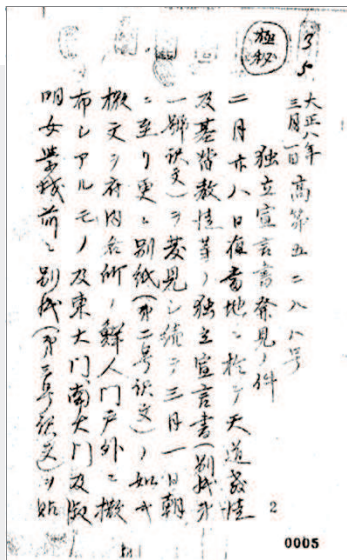 35
極秘
大正八年
三月一日 高第五二八八号
独立宣言書発見ノ件
二月廿八日夜当地ニ於テ天道教徒
及基督教徒等ノ独立宣言書(別紙第
一號訳文)ヲ発見シ続テ三月一日朝
ニ至リ更ニ別紙(第二号訳文)ノ如キ
檄文ヲ府内各所ノ鮮人門戸外ニ撒
布シアルモノ及東大門、南大門及
明女学校前ニ別紙(第三号訳文)ヲ貼
2
0005